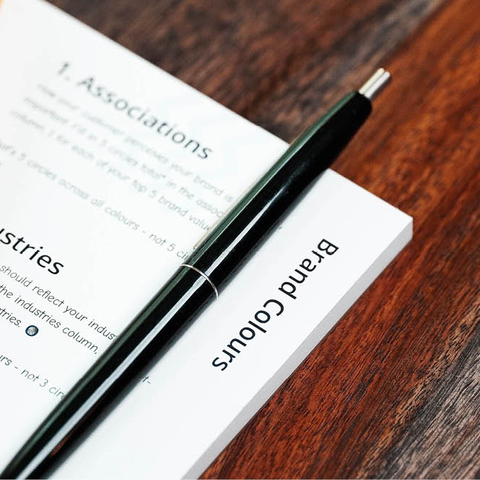 1. Associations
How your customer perceives your brand is
important. Fill in 5 circles total* in the assoc
column, 1 for each of your top 5 brand value
ur's 5 circles across all colours - not 5 ci
ustries
should reflect your indus
the industries column,
tries.
urs - not 3 cir
Brand Colours